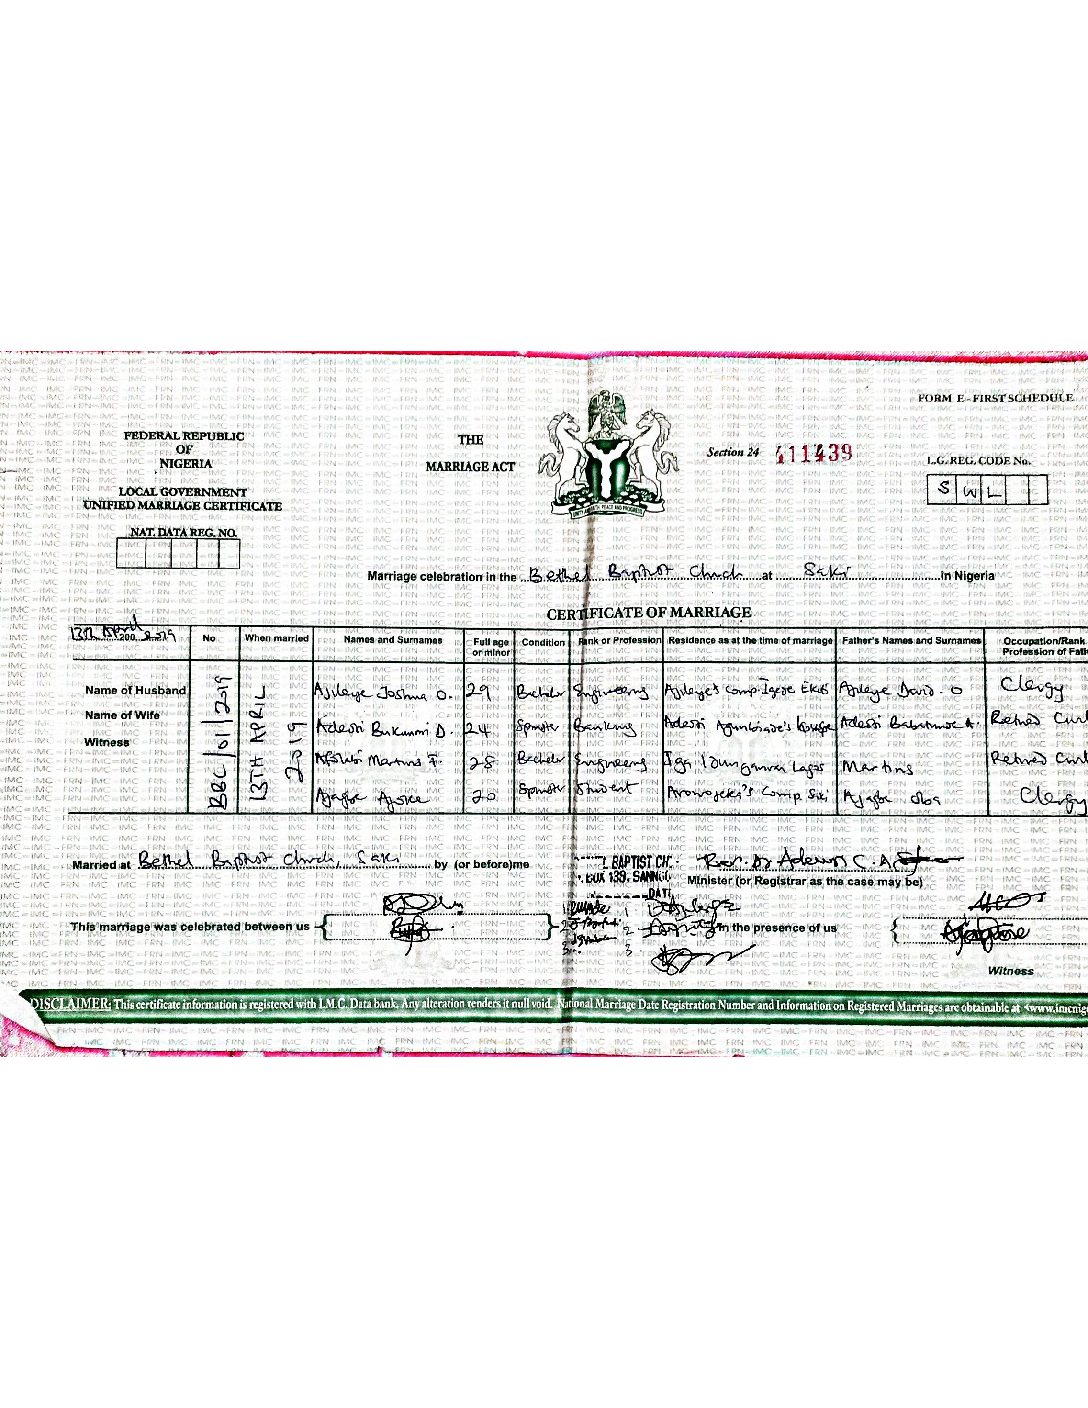 FORM E - FIRST SCHEDULE
FEDERAL REPUBLIC
OF
NIGERIA
THE
MARRIAGE ACT
Section 24 411439
L.G. REG. CODE No.
S W L
LOCAL GOVERNMENT
UNIFIED MARRIAGE CERTIFICATE
NAT. DATA REG. NO.
Marriage celebration in the Bethel Baptist Church at Saki in Nigeria
CERTIFICATE OF MARRIAGE
13th April 200 2019 No When married Names and Surnames Full age or minor Condition Rank or Profession Residence as at the time of marriage Father's Names and Surnames Occupation/Rank Profession of
BBC/01/2019
13TH APRIL 2019
Name of Husband Ajileye Joshua O. 29 Bachelor Engineering Ajileye's Comp. Ekiti Ajileye David O Clergy
Name of Wife Adesri Bukunmi D. 24 Spinster Banking Adesri House Adesri A. Retired
Witness Martins F. 28 Bachelor Engineering Lagos Martins Retired
20 Spinster Student Comp Clergy
Married at Bethel Baptist Church, Saki by (or before) me Rev. C. A.
BAPTIST CH.
BOX 139,
DATE
Minister (or Registrar as the case may be)
This marriage was celebrated between us in the presence of us
Witness
DISCLAIMER: This certificate information is registered with I.M.C. Data bank. Any alteration renders it null void. National Marriage Date Registration Number and Information on Registered Marriages are obtainable at